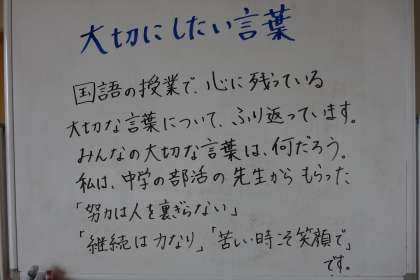 大切にしたい言葉
国語の授業で、心に残っている
大切な言葉について、ふり返っています。
みんなの大切な言葉は、何だろう。
私は、中学の部活の先生からもらった、
「努力は人を裏ぎらない」
「継続は力なり」「苦しい時こそ笑顔で」
です。